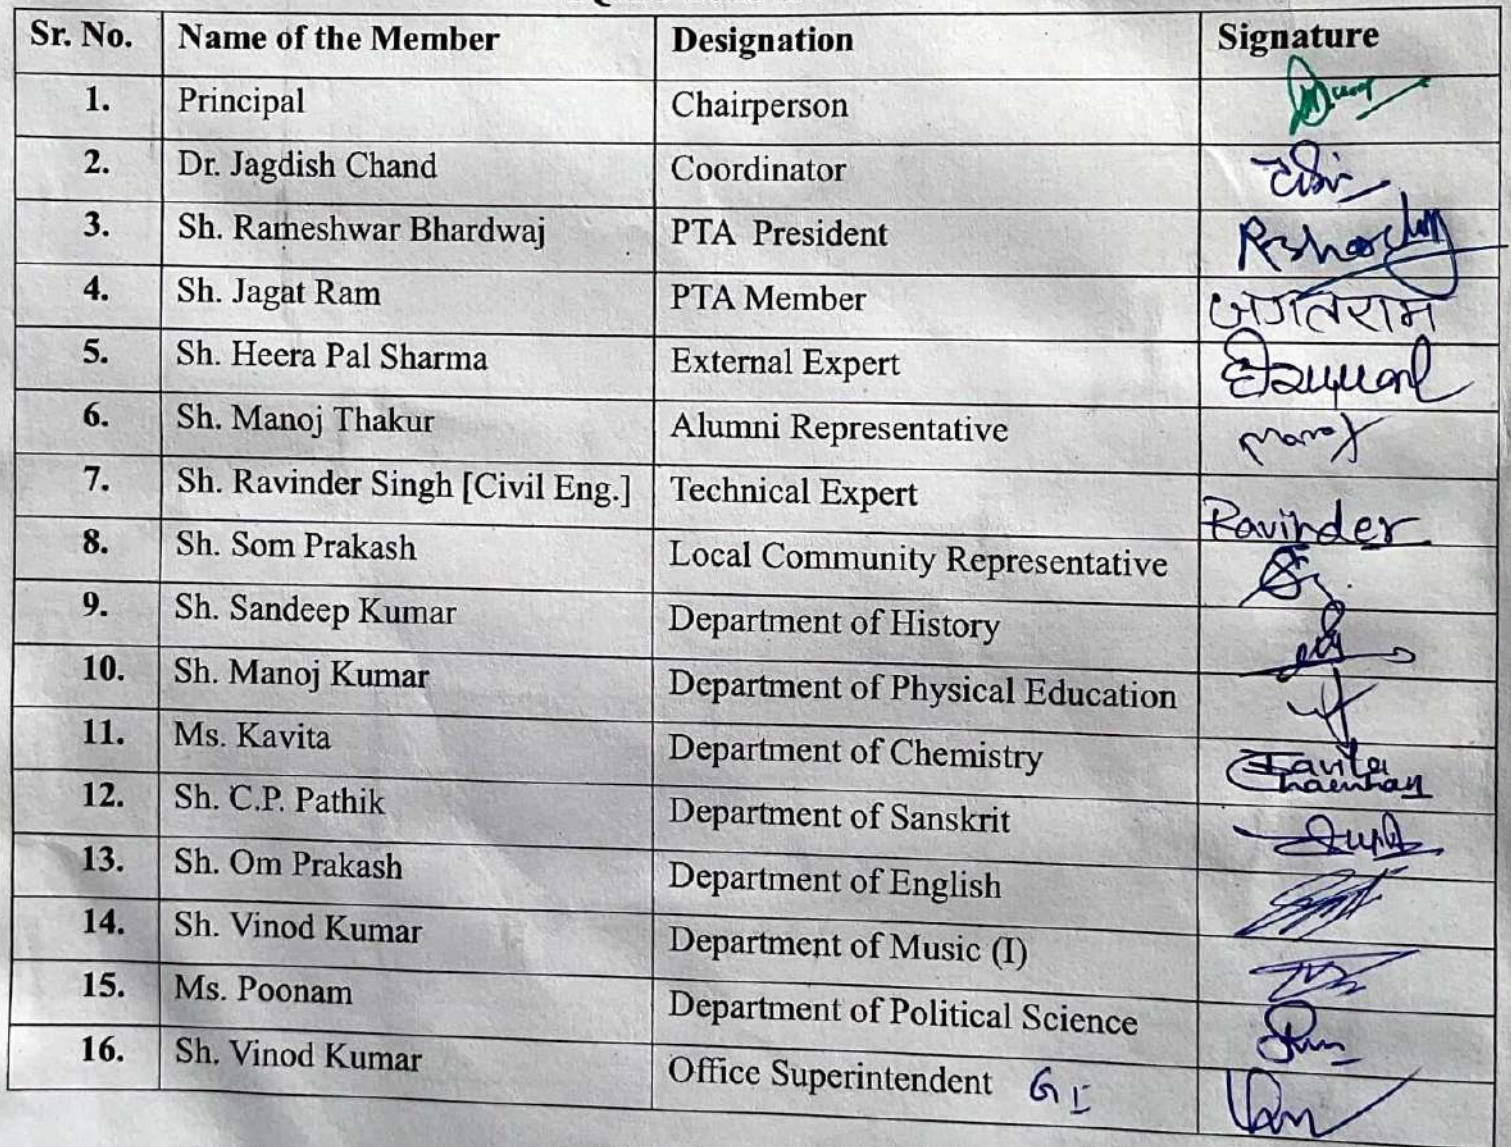 Sr. No. Name of the Member Designation Signature
1. Principal Chairperson
2. Dr. Jagdish Chand Coordinator
3. Sh. Rameshwar Bhardwaj PTA President
4. Sh. Jagat Ram PTA Member जगतराम
5. Sh. Heera Pal Sharma External Expert
6. Sh. Manoj Thakur Alumni Representative Manoj
7. Sh. Ravinder Singh [Civil Eng.] Technical Expert Ravinder
8. Sh. Som Prakash Local Community Representative
9. Sh. Sandeep Kumar Department of History
10. Sh. Manoj Kumar Department of Physical Education
11. Ms. Kavita Department of Chemistry Kavita
12. Sh. C.P. Pathik Department of Sanskrit
13. Sh. Om Prakash Department of English
14. Sh. Vinod Kumar Department of Music (I)
15. Ms. Poonam Department of Political Science
16. Sh. Vinod Kumar Office Superintendent G I